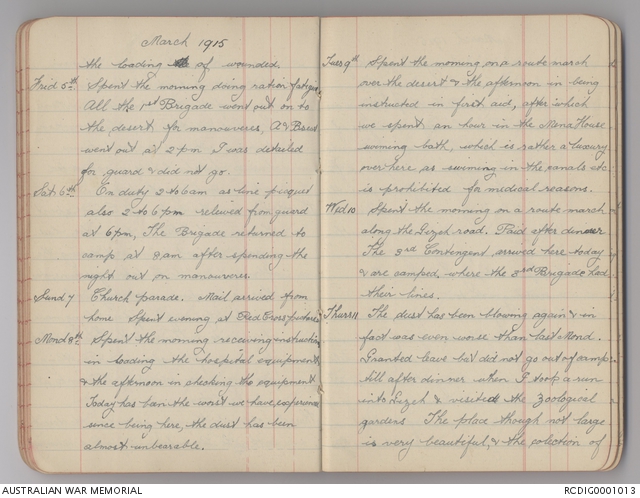 March 1915
the loading of wounded.
Frid 5th Spent the morning doing ration fatigue,
All the 1st Brigade went out on to
the desert for manouveres, A & B secs
went out at 2 pm I was detailed
for guard & did not go.
Sat 6th On duty 2 to 6 am as line picquet
also 2 to 6 pm releived from guard
at 6 pm, The Brigade returned to
camp at 8 am after spending the
night out on manouveres.
Sund 7 Church parade. Mail arrived from
home Spent evening at Red Cross pictures
Mond 8th Spent the morning receiving instruction
in loading the hospital equipment
& the afternoon in checking the equipment
Today has been the worst we have experienced
since being here, the dust has been
almost unbearable.
Tues 9th Spent the morning on a route march
over the desert & the afternoon in being
instructed in first aid, after which
we spent an hour in the Mena House
swiming bath, which is rather a luxury
over here as swiming in the canals etc
is prohibited for medical reasons.
Wed 10 Spent the morning on a route march
along the Gezeh road. Paid after dinner
The 3rd Contingent arrived here today
& are camped, where the 3rd Brigade had
their lines.
Thurs 11 The dust has been blowing again & in
fact was even worse than last Mond.
Granted leave but did not go out of camp
till after dinner when I took a run
into Gezeh & visited the Zoological
gardens The place though not large
is very beautiful, & the colection of
AUSTRALIAN WAR MEMORIAL
RCDIG0001013